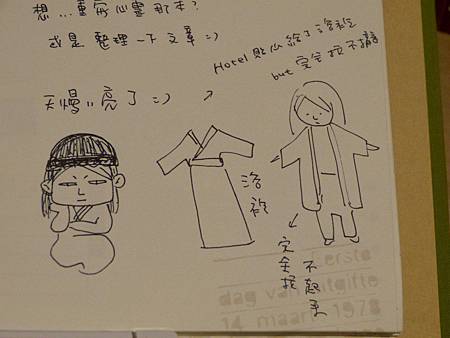 想...重 心靈那本?
或是 整理一下文章 =)
Hotel 貼心給了浴袍
but 完全拉不攏
天慢〃亮了 =)
浴袍
完全
不起來
erste
dag van uitgifte
14 maart 1978